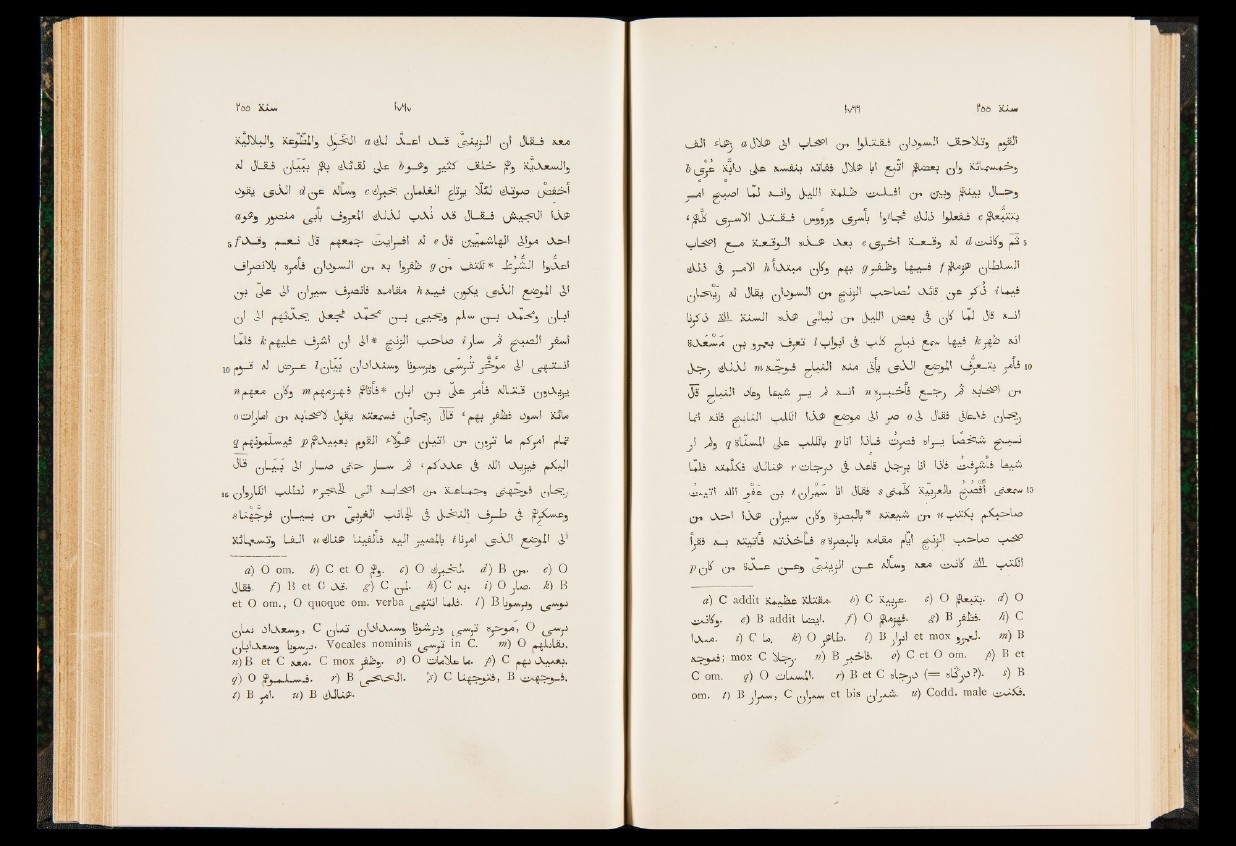 سنة ٢٥٥ ١٧٦٦
القوم وتلاحق السودان فقتلوا من اصحاب ابى هلال a زهاء الف
وخمسمائة وان بعضهم اتّبع ابا هلال ففاته بنفسه على دابّة عُرْى b
وحال بينهم وبين من افلت ظلمة الليل وانه لمّا اصبح امر
بتتبّعهم c ففعلوا ذلك فجاءوا بأسرى ورؤوس فقتل الاسرى كلّهم
5 ثم وكانت d له وقعة اخرى e بعد هذه الوقعة مع اصحاب
السلطان هزمهم f فيها وظفر g بهم وكان مبتدأ h الامر في ذلك
فيما i ذُكر عن قائد لصاحب الزنج من السودان يقال له رَيْحان
انه قال لمّا كان في بعض الليل من ليالى هذه السنة التى ذكرنا
انه ظهر k فيها سمع نباح كلب في ابواب l تعرف بعمرو بن مَسْعَدَة
10 فأمر بتعرّف الموضع الذى يأتى منه النباح فوجّه m لذلك رجل
من اصحابه ثم رجع فأخبره n انه لم ير شيئا وعاد النباح قال
ريحان فدعانى فقال لى o صر الى موضع هذا الكلب النابح فانه انما
نبح شخصا يراه فصرت فاذا انا p بالكلب على المسنّاة q ولم ار
شيئا فأشرفت فاذا انا برجل قاعد في درجات r هنالك فكلّمته فلمّا
15 سمعنى أفصح بالعربيّة كلّمنى s فقال انا سيران t بن عفو الله اتيت
صاحبكم بكتب u من شيعته *بالبصرة وكان سيران هذا احد من
صحب صاحب الزنج ايّام مقامه بالبصرة s فأخذته فأتيته به فقرأ
الكتب التى كانت معه وسأله عن الزينبى وعن عدّة من كان v
a) C addit مقتلة عظيمة. b) C عربية. c) O بتبعهم. d) O
وكانت. e) B addit ايضا. f) O فهزمهم. g) B فظفر. h) C
ابتدا. i) C ما. k) O ظاهر. l) B ابرار et mox لعمرو. m) B
فوجه; mox C رجلا. n) B فاخبر. o) C et O om. p) B et
C om. q) O المسنات. r) B et C درجاه (= درجاة?). s) B
om. t) B سمرار, C سيران et bis شيران. u) Codd. male فكتب.
سنة ٢٥٥ ١٧٦٧
معه فقال ان الزينبى قد اعدّ لك a الخَوَل والمطّوّعة والبلاليّة
والسعديّة وهم خلق كثير وهو b على لقائك بهم ببَيَان فقال له
أخفض صوتك لئلّا يرتاع الغلمان بخبرك c وسأله عن d الذى يقود
هذا الجيش فقال قد نُدب لذلك المعروف بأبى منصور وهو a
5 احد موالى الهاشميّين قال e له افرأيت جمعهم قال نعم وقد f
اعدّوا الشُرُط *لكتف من g ظفروا به من السودان فأمره بالانصراف
الى الموضع الذى يكون فيه h مقامه فانصرف سيران الى علىّ بن
ابان ومحمّد بن سلم ويحيى بن محمّد فجعل يحدّثهم الى ان
أسفر الصبح ثم سار i صاحب الزنج *الى ان اشرف عليهم k فلمّا
10 انتهى الى مؤخّر ترسى وبرسونا وسندادان بيان l عرض له قوم
يريدون قتاله فأمر علىّ بن ابان *فأتاهم فهزمهم m وكان معهم n
مائة اسود فظفر بهم، قال ريحان فسمعته يقول لاصحابه من امارات o
تمام امركم ما ترون من اتيان هؤلاء القوم بعبيدهم p فيسلمونهم q
اليكم فيزيد الله في عددكم، ثم سار حتى صار الى بَيَان قال
15 ريحان فوجّهنى وجماعة من اصحابه الى الحجر r لطلب الكاروان
وعسكرهم في طرف النخل في الجانب الغربى من بيان فوجّهنا s
الى الموضع الذى امرنا t بالمصير اليه فألفينا هناك u الفا وتسعمائة
a) O om. b) C et O وهم. c) O لخبرك. d) B من. e) O
فقال. f) B et C قد. g) C لمن. h) C به. i) O صار. k) B
et O om., O quoque om. verba فلما انتهى. l) B ترسى وبرسونا
وسعدادان بيان, C مؤخره ترسى وبرشونا وسندادان تمان, O ترسى
برسونا وسعدابابان. Vocales nominis ترسى in C. m) O بقاتلهم.
n) B et C معه. C mox وظفر. o) O ما علامات. p) C بعبيد بهم.
q) O فسلموهم. r) B الحاحى. s) C فتوجهنا, B فوجهت.
t) B امر. u) B هنالك.